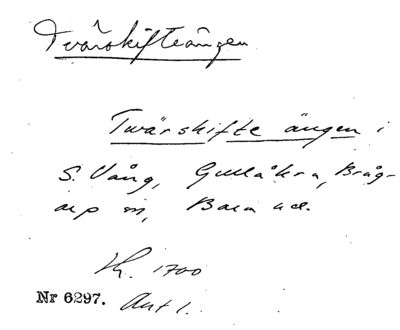 Tvärskifteängen
Twärskifte ängen i
S. Vång, Gullåkra, Bråg-
arp sn, Bara hd.
Lh. 1700
Nr 6297. Akt 1.